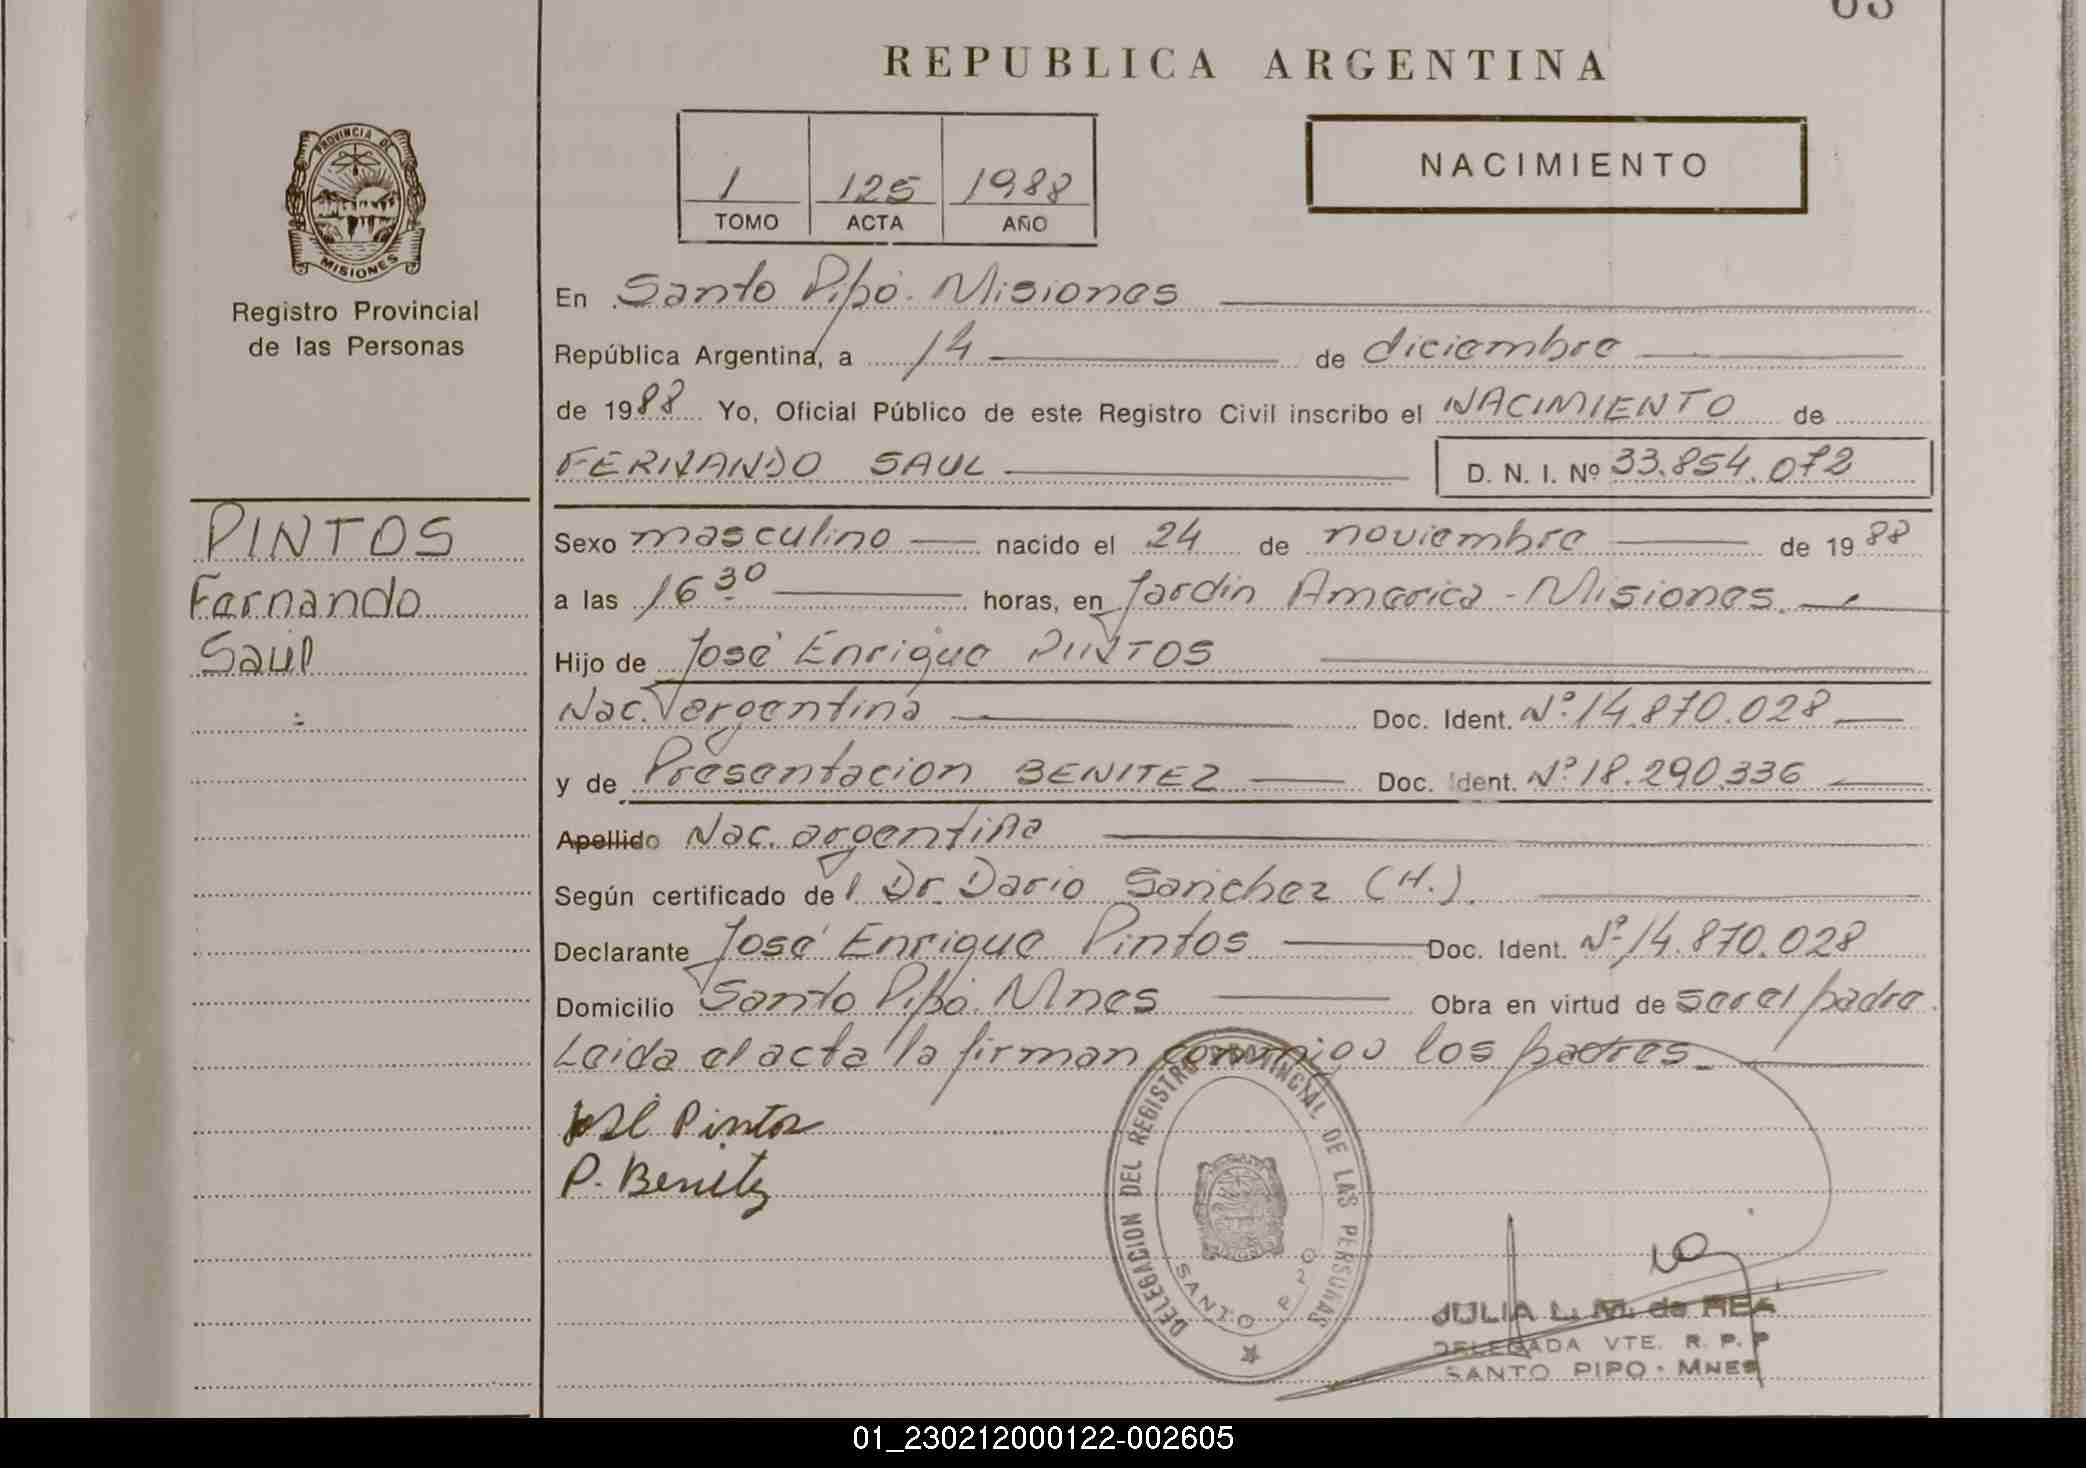 REPUBLICA ARGENTINA
PROVINCIA DE MISIONES
Registro Provincial
de las Personas
1 125 1988
TOMO ACTA AÑO
NACIMIENTO
En Santo Pipó. Misiones
República Argentina, a 14 de diciembre
de 1988 Yo, Oficial Público de este Registro Civil inscribo el NACIMIENTO de
FERNANDO SAUL D. N. I. Nº 33.854.072
PINTOS
Fernando
Saúl
Sexo masculino nacido el 24 de noviembre de 1988
a las 16 30 horas, en Jardin America - Misiones.
Hijo de José Enrique PINTOS
Nac. argentina Doc. Ident. Nº 14.870.028
y de Presentacion BENITEZ Doc. Ident. Nº 18.290.336
Apellido Nac. argentina
Según certificado del Dr. Dario Sanchez (H.).
Declarante José Enrique Pintos Doc. Ident. Nº 14.870.028
Domicilio Santo Pipó. Mnes Obra en virtud de ser el padre.
Leida el acta la firman conmigo los padres.
José Pintos
P. Benitez
DELEGACION DEL REGISTRO PROVINCIAL DE LAS PERSONAS
SANTO PIPO
JULIA L. M. de REA
DELEGADA VTE. R. P. P
SANTO PIPO - MNES
01_230212000122-002605